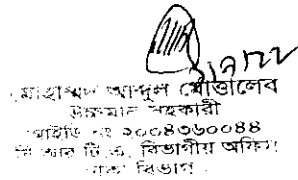 মোহাম্মদ আব্দুল মোত্তালেব
উচ্চমান সহকারী
আইডি নং ২০০৪৩৬০০৪৪
বি আর টি এ, বিভাগীয় অফিস
ঢাকা বিভাগ